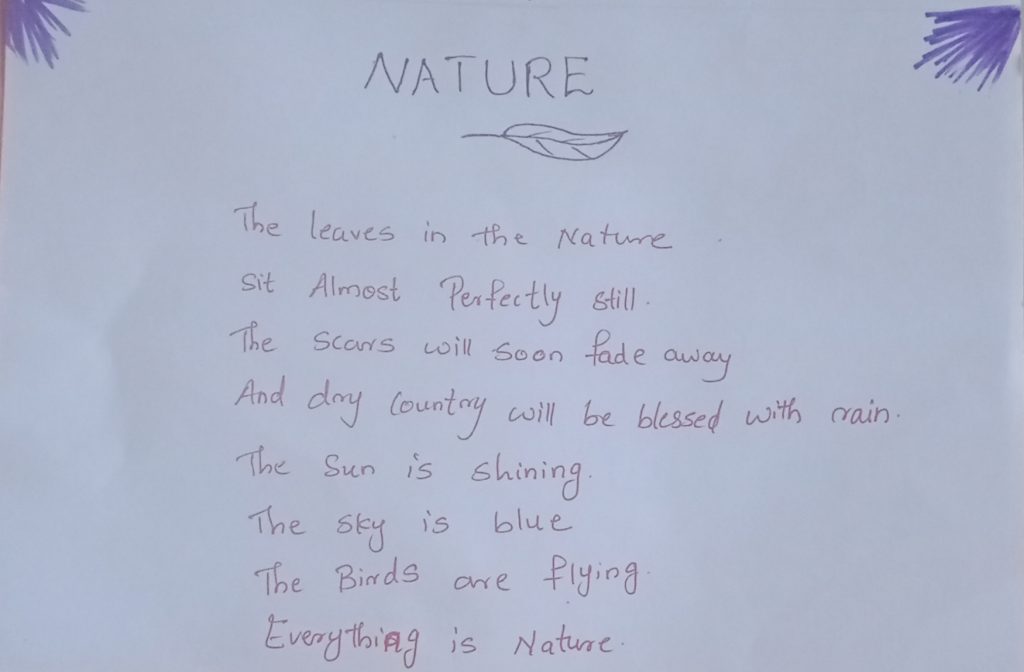 NATURE
The leaves in the Nature
Sit Almost Perfectly still.
The scars will soon fade away
And dry Country will be blessed with rain.
The Sun is shining.
The sky is blue
The Birds are flying.
Everything is Nature.